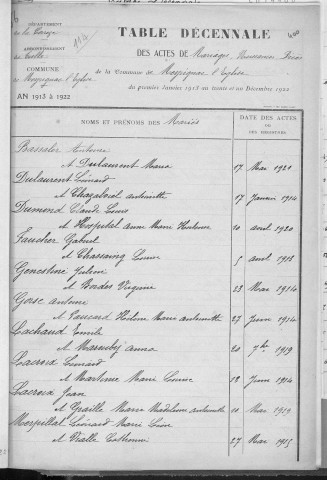 DÉPARTEMENT
de la Corrèze
ARRONDISSEMENT
de Tulle
COMMUNE
de Meyrignac l'Eglise
AN 1913 à 1922
114
TABLE DÉCENNALE
DES ACTES de Mariages
de la Commune de Meyrignac l'Eglise
du premier Janvier 1913 au trente et un Décembre 1922
NOMS ET PRÉNOMS DES Mariés
DATE DES ACTES
OU
DES REGISTRES
Bassaler Antoine
et Dulaurent Maria 17 Mai 1920
Dulaurent Léonard
et Chazalviel Antoinette 17 Janvier 1914
Dumond Claude Louis
et Anne Marie 10 avril 1920
Faucher Gabriel
et Chassaing Louise 5 avril 1913
Genestine Julien
et Bordes Virginie 23 Mai 1914
Gorse Antoine
et Faucard Hélène Marie Antoinette 27 Juin 1914
Lachaud Emile
et Anna 20 7bre 1919
Lacroix Léonard
et Martinie Marie Louise 13 Juin 1914
Lacroix Jean
et Graille Marie Madeleine Antoinette 10 Mai 1919
Merpillat Léonard Marie Léon
et Vialle 27 Mars 1915